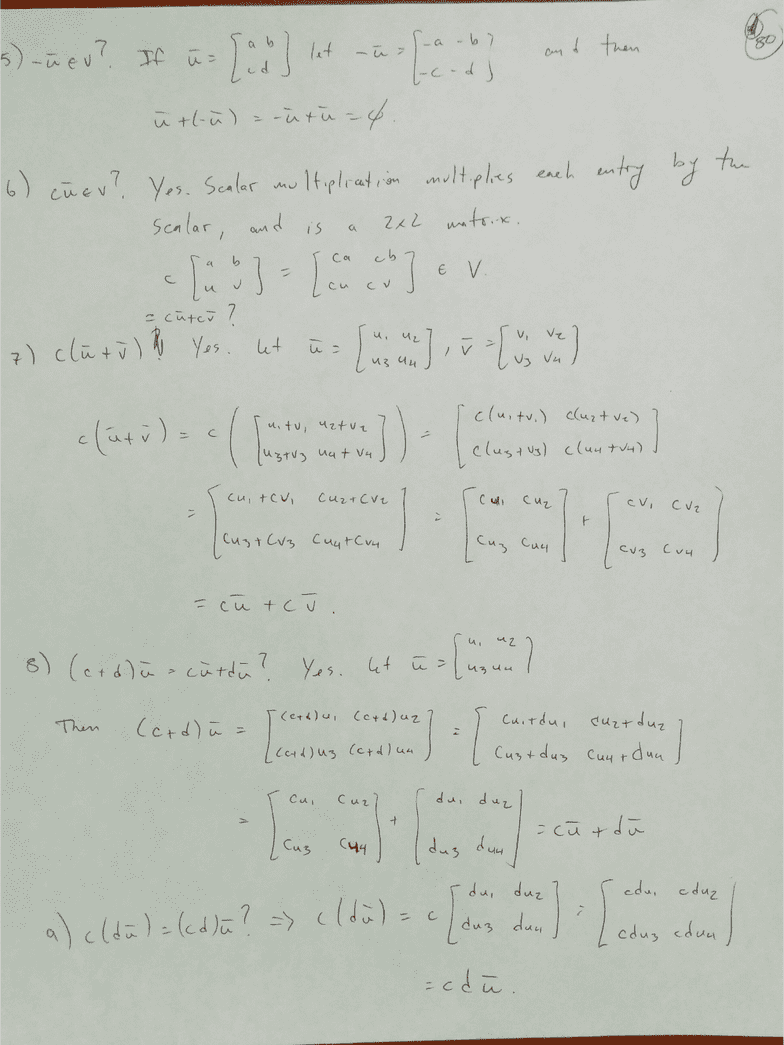 80
5) -ū ∈ V? If ū = [a b; c d] let -ū = [-a -b; -c -d] and then
ū + (-ū) = -ū + ū = ∅.
6) cū ∈ V? Yes. Scalar multiplication multiplies each entry by the
scalar, and is a 2x2 matrix.
c [a b; u v] = [ca cb; cu cv] ∈ V.
= cū + cv̄ ?
7) c(ū + v̄) Yes. Let ū = [u1 u2; u3 u4], v̄ = [v1 v2; v3 v4]
c(ū + v̄) = c ([u1+v1 u2+v2; u3+v3 u4+v4]) = [c(u1+v1) c(u2+v2); c(u3+v3) c(u4+v4)]
= [cu1+cv1 cu2+cv2; cu3+cv3 cu4+cv4] = [cu1 cu2; cu3 cu4] + [cv1 cv2; cv3 cv4]
= cū + cv̄.
8) (c+d)ū = cū + dū? Yes. Let ū = [u1 u2; u3 u4]
Then (c+d)ū = [(c+d)u1 (c+d)u2; (c+d)u3 (c+d)u4] = [cu1+du1 cu2+du2; cu3+du3 cu4+du4]
= [cu1 cu2; cu3 cu4] + [du1 du2; du3 du4] = cū + dū
9) c(dū) = (cd)ū? => c(dū) = c [du1 du2; du3 du4] = [cdu1 cdu2; cdu3 cdu4]
= cdū.